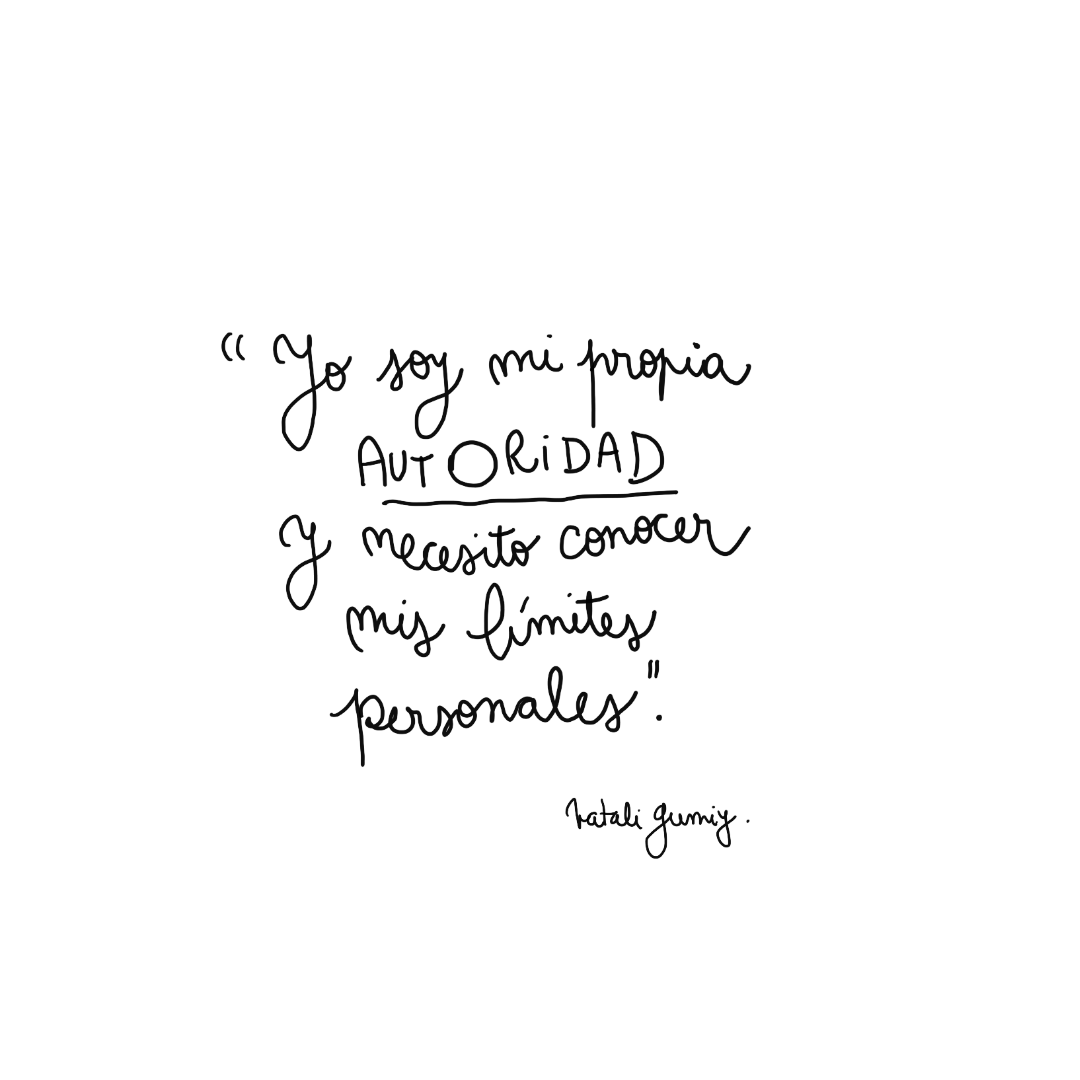 “Yo soy mi propia
AUTORiDAD
y necesito conocer
mis límites
personales".
Natali Gumiy.